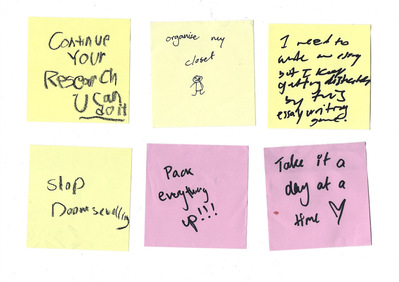 Continue
Your
Research
U Can
do it
organise my
closet
I need to
write an essay
but I keep
getting distracted
by this
essay writing
game.
Stop
Doomscrolling
Pack
everything
up!!!
Take it a
day at a
time